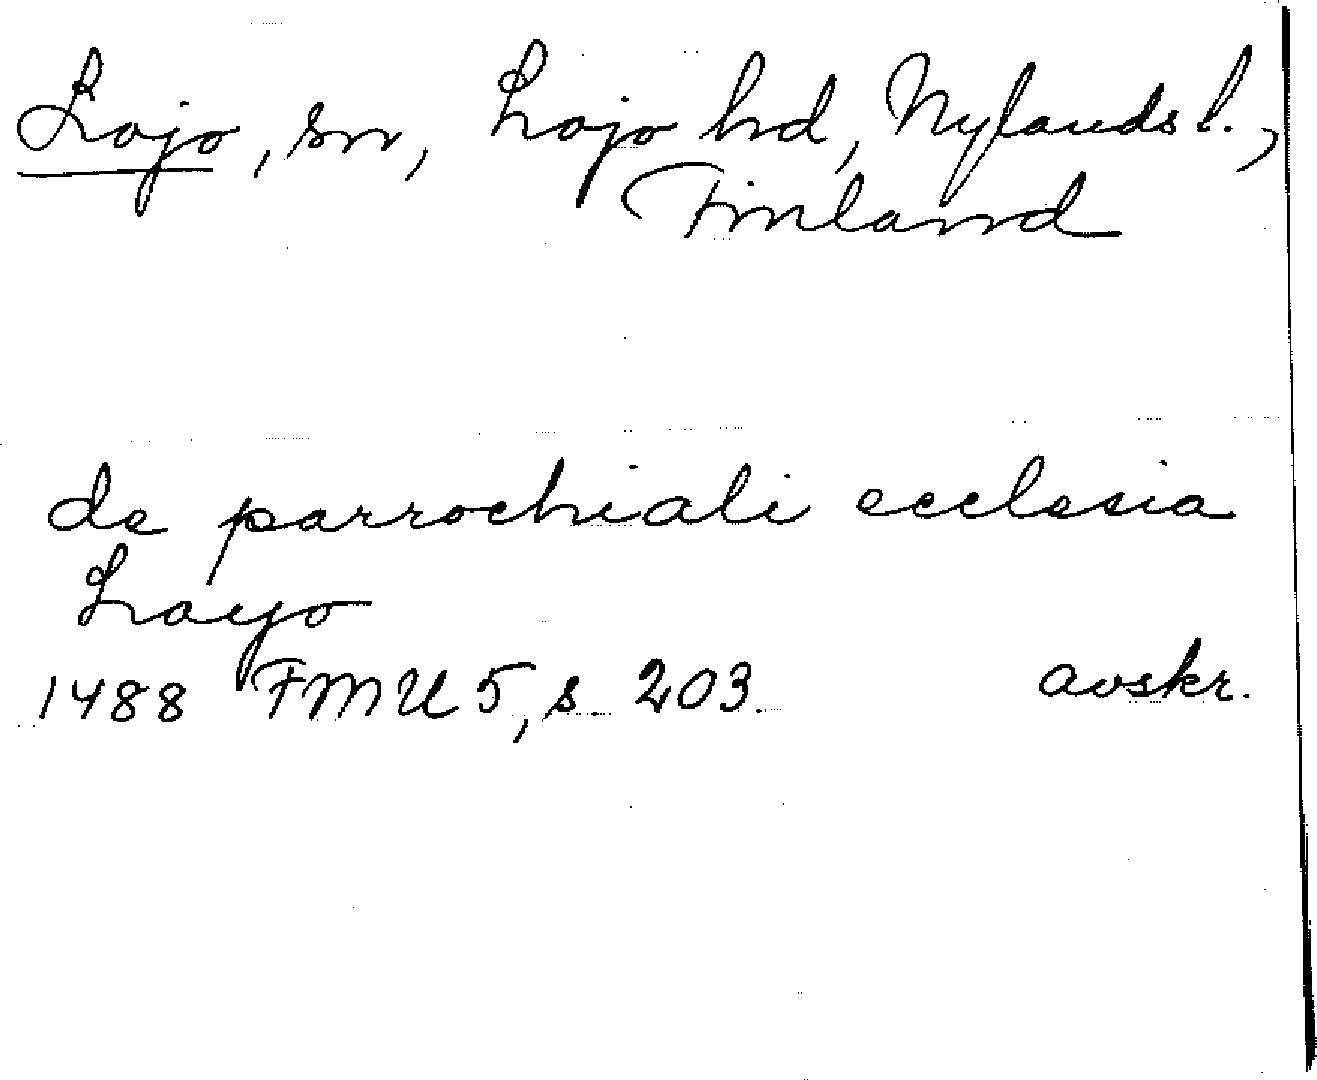 Lojo, sn, Lojo hd, Nylands l.,
Finland
de parrochiali ecclesia
Loyo
1488 FMU 5, s. 203. avskr.